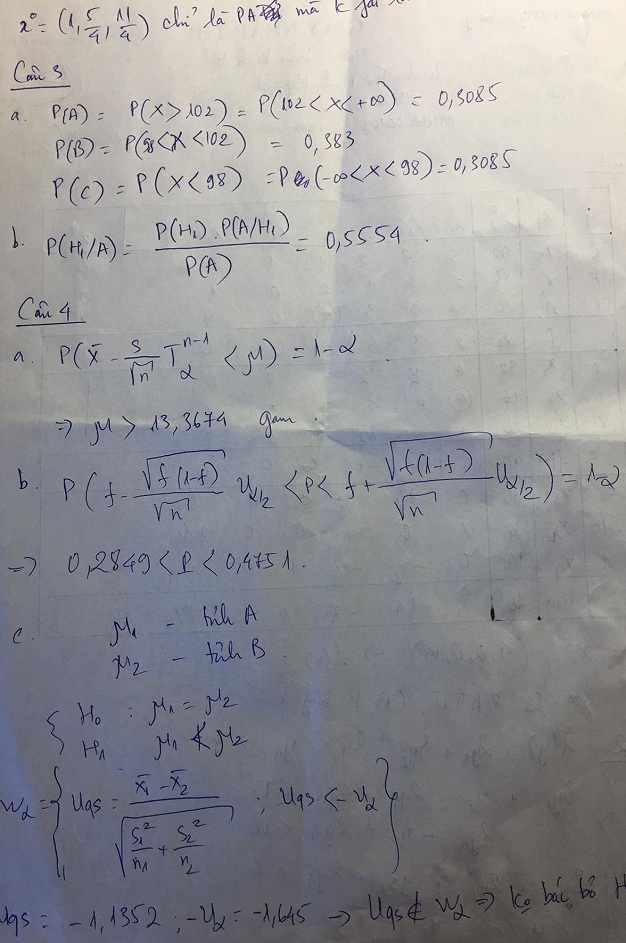 x⁰ = (1, 5/4, 11/4) chỉ là PA mà k
Câu 3
a. P(A) = P(X > 102) = P(102 < X < +∞) = 0,3085
P(B) = P(98 < X < 102) = 0,383
P(C) = P(X < 98) = P(-∞ < X < 98) = 0,3085
b. P(H₁/A) = P(H₁).P(A/H₁) / P(A) = 0,5554.
Câu 4
a. P(x̄ - s/√n T_α^{n-1} < μ) = 1-α
=> μ > 13,3674 gam.
b. P(f - √f(1-f)/√n U_{α/2} < P < f + √f(1-f)/√n U_{α/2}) = 1-α
=> 0,2849 < P < 0,4751.
c. μ₁ - tỉnh A
μ₂ - tỉnh B
{ H₀ : μ₁ = μ₂
H₁ μ₁ < μ₂
W_α = { Uqs = (x̄₁ - x̄₂) / √(S₁²/n₁ + S₂²/n₂) ; Uqs < -U_α }
Uqs = -1,1352 ; -U_α = -1,645 → Uqs ∉ W_α => ko bác bỏ H